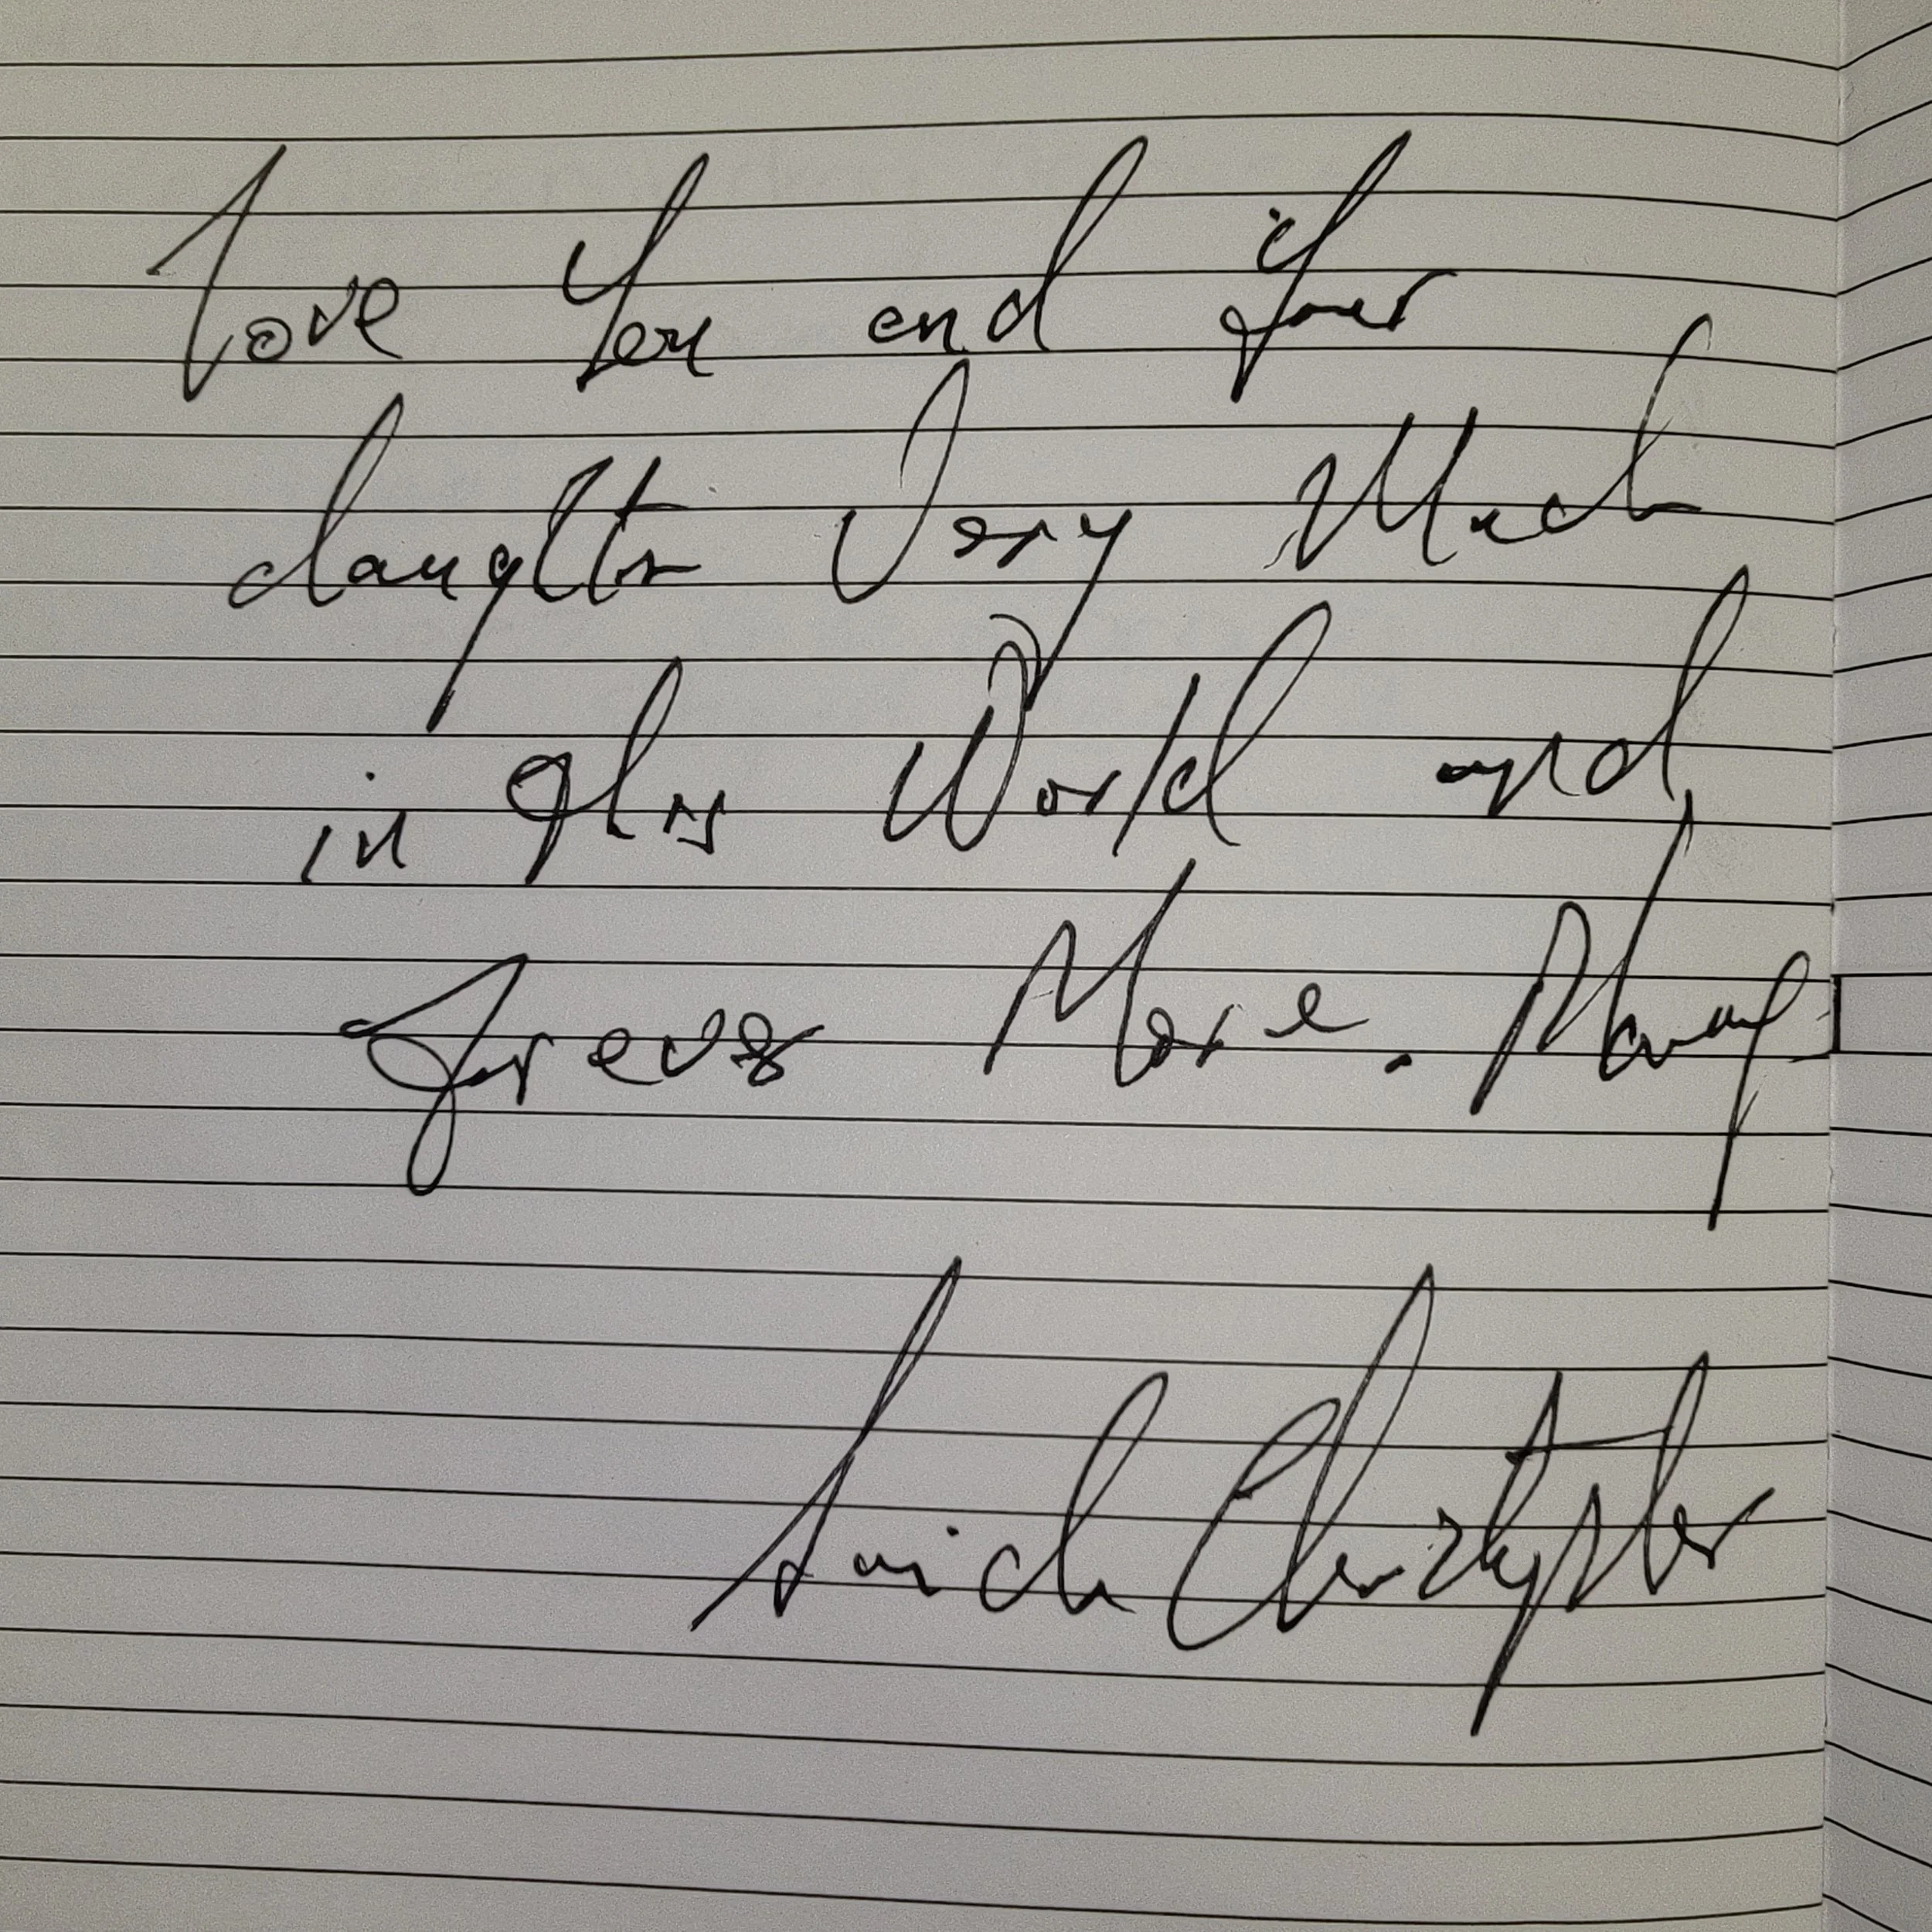 Love You and Your
daughter Very Much
in This World and
forever More.
Christopher